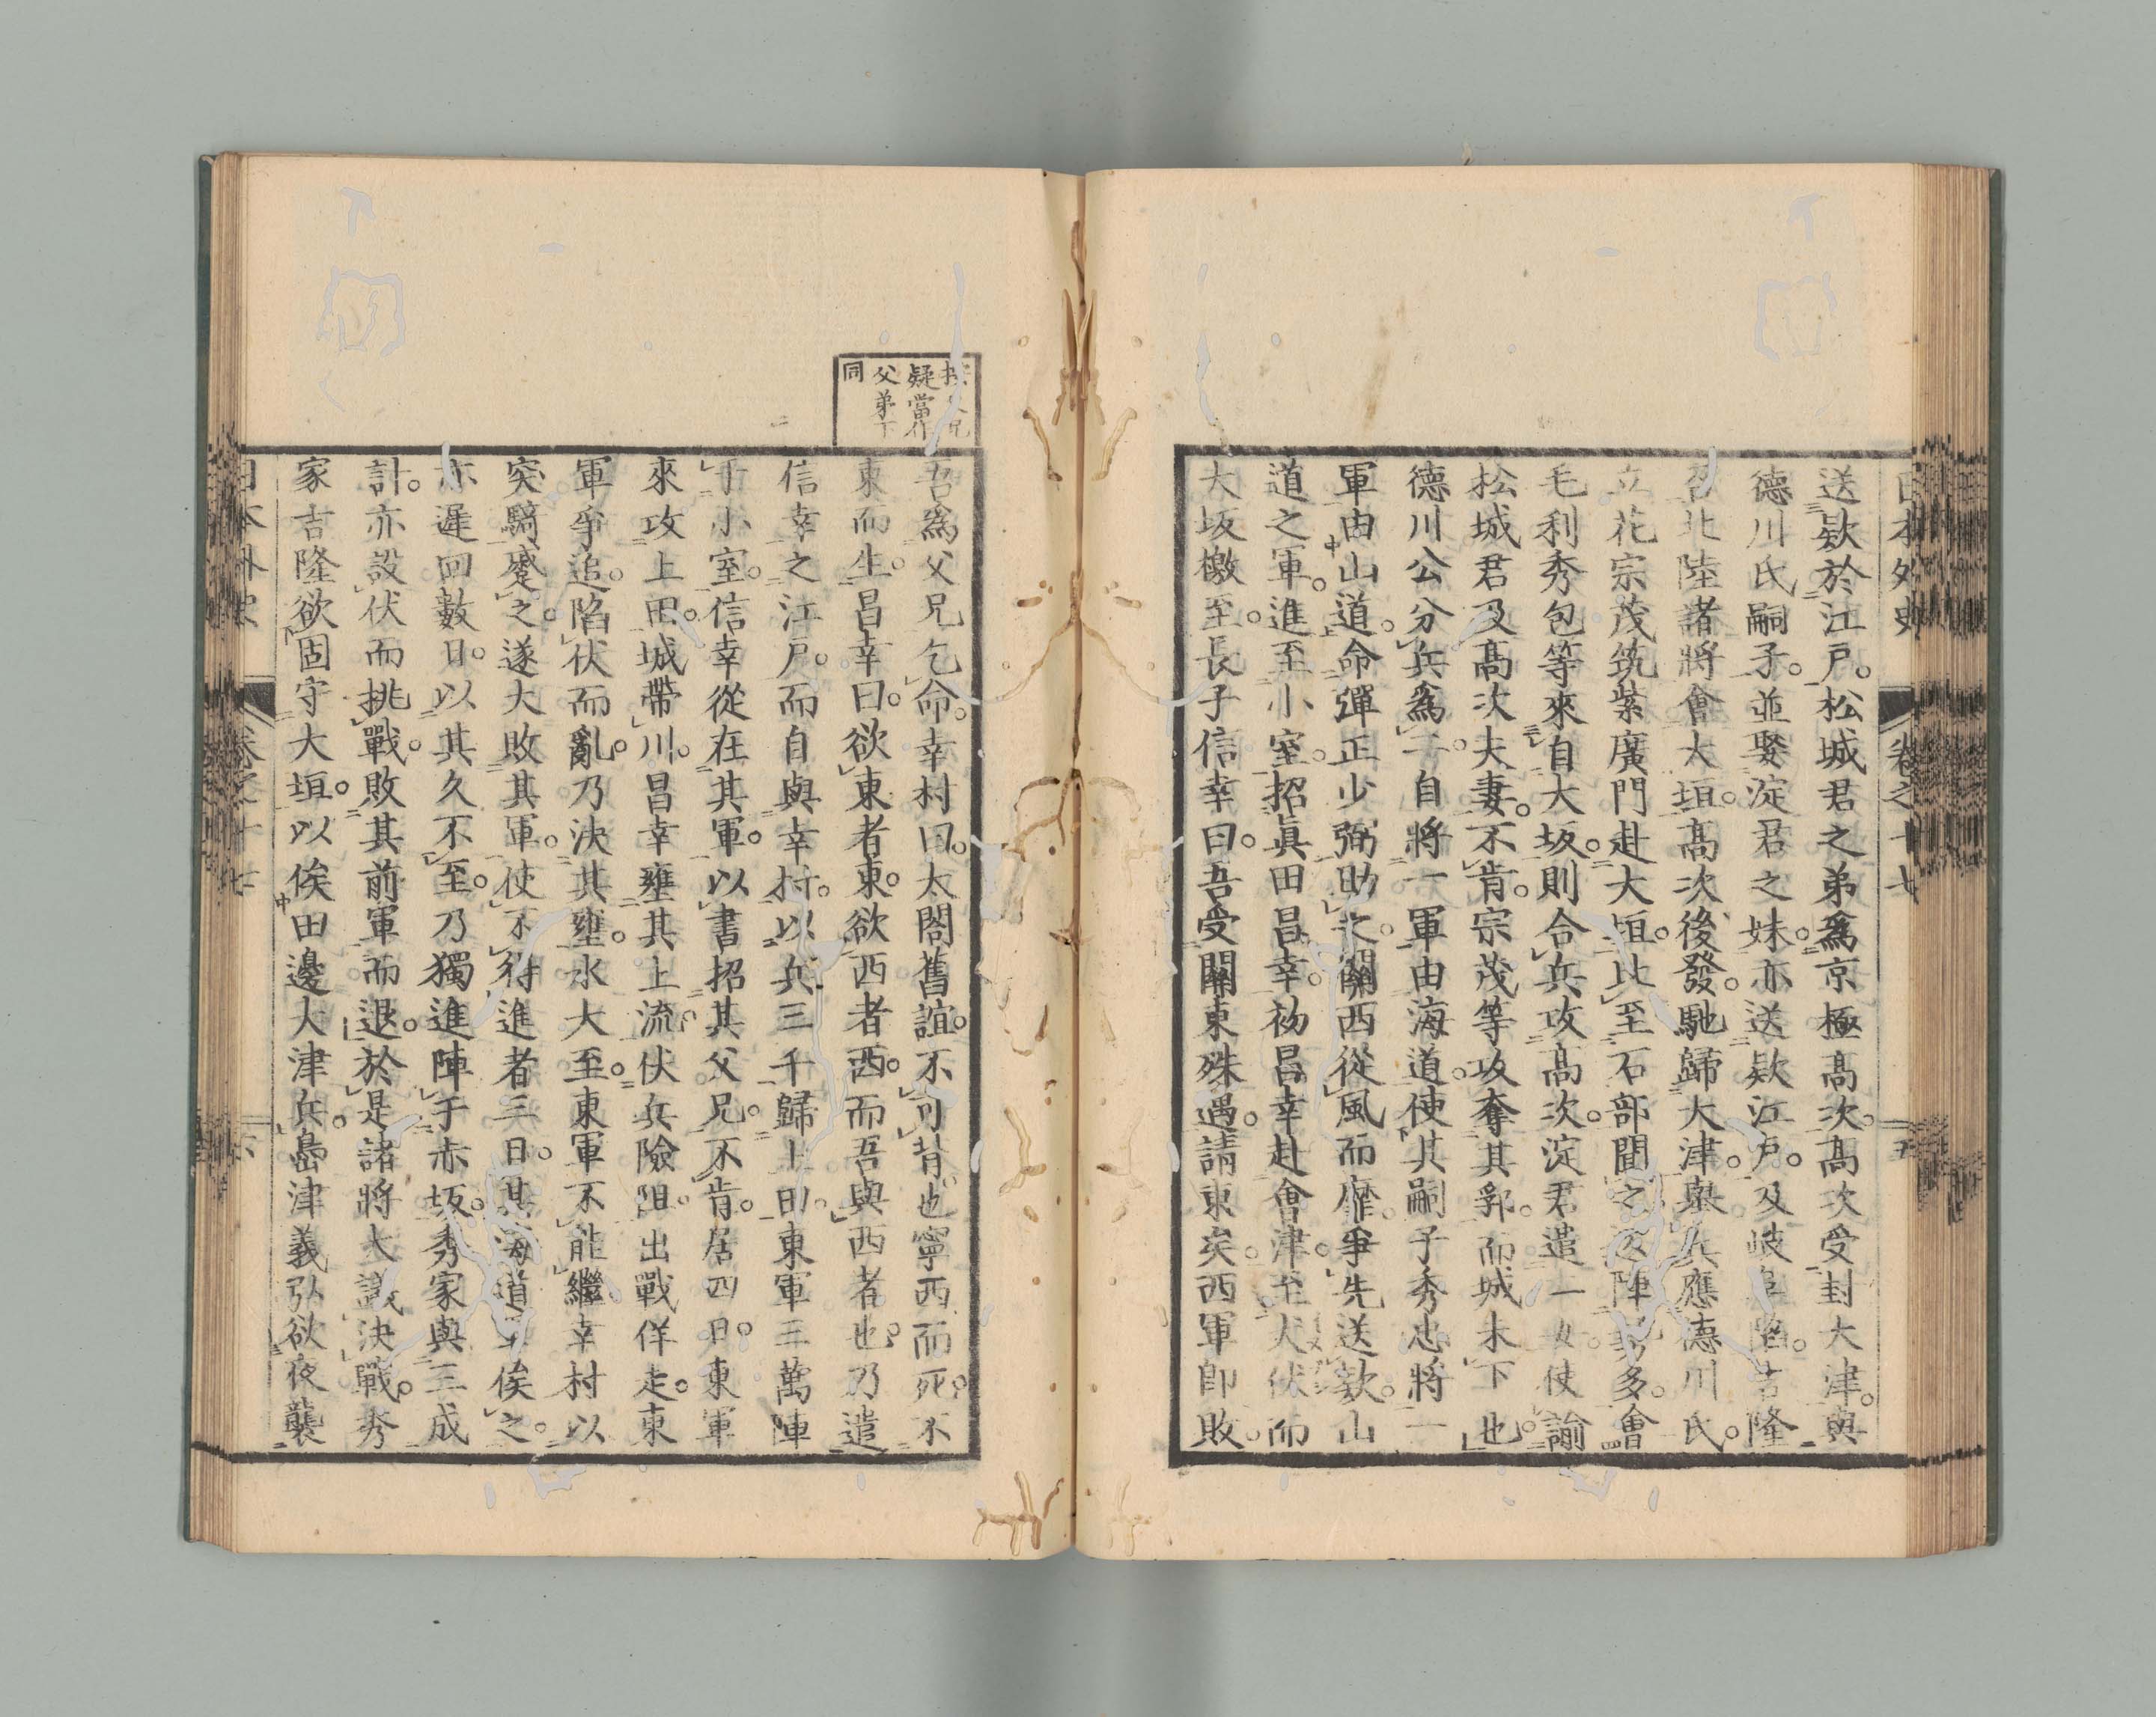 日本外史 卷之十七 五
送欵於江戶。松城君之弟爲京極高次。高次受封大津。與
德川氏嗣子。並娶淀君之妹。亦送欵江戶。及岐阜陷。吉隆
召北陸諸將會大垣。高次後發。馳歸大津。擧兵應德川氏。
立花宗茂筑紫廣門赴大垣。比至石部聞之。返陣勢多。會
毛利秀包等來自大坂。則合兵攻高次。淀君遣一女使諭
松城君及高次夫妻。不肯。宗茂等攻奪其郛。而城未下也。
德川公分兵爲二。自將一軍由海道。使其嗣子秀忠將一
軍由山道。命彈正少弼助之。關西從風而靡。爭先送欵。山
道之軍。進至小室。招眞田昌幸。初昌幸赴會津。至犬伏而
大坂檄至。長子信幸曰。吾受關東殊遇。請東矣。西軍卽敗。
吾爲父兄乞命。幸村曰。太閤舊誼。不可背也。寧西而死。不
東而生。昌幸曰。欲東者東。欲西者西。而吾與西者也。乃遣
信幸之江戶。而自與幸村。以兵三千歸上田。東軍三萬陣
于小室。信幸從在其軍。以書招其父兄。不肯。居四日。東軍
來攻上田。城帶川。昌幸壅其上流。伏兵險阻。出戰佯走。東
軍爭追。陷伏而亂。乃決其壅。水大至。東軍不能繼。幸村以
突騎蹙之。遂大敗其軍。使不得進者三日。其海道軍俟之。
亦遲回數日。以其久不至。乃獨進陣于赤坂。秀家與三成
計。亦設伏而挑戰。敗其前軍而退。於是諸將大議決戰。秀
家吉隆欲固守大垣。以俟田邊大津兵。島津義弘欲夜襲
疑當作
父弟下
同
日本外史 卷之十七 六